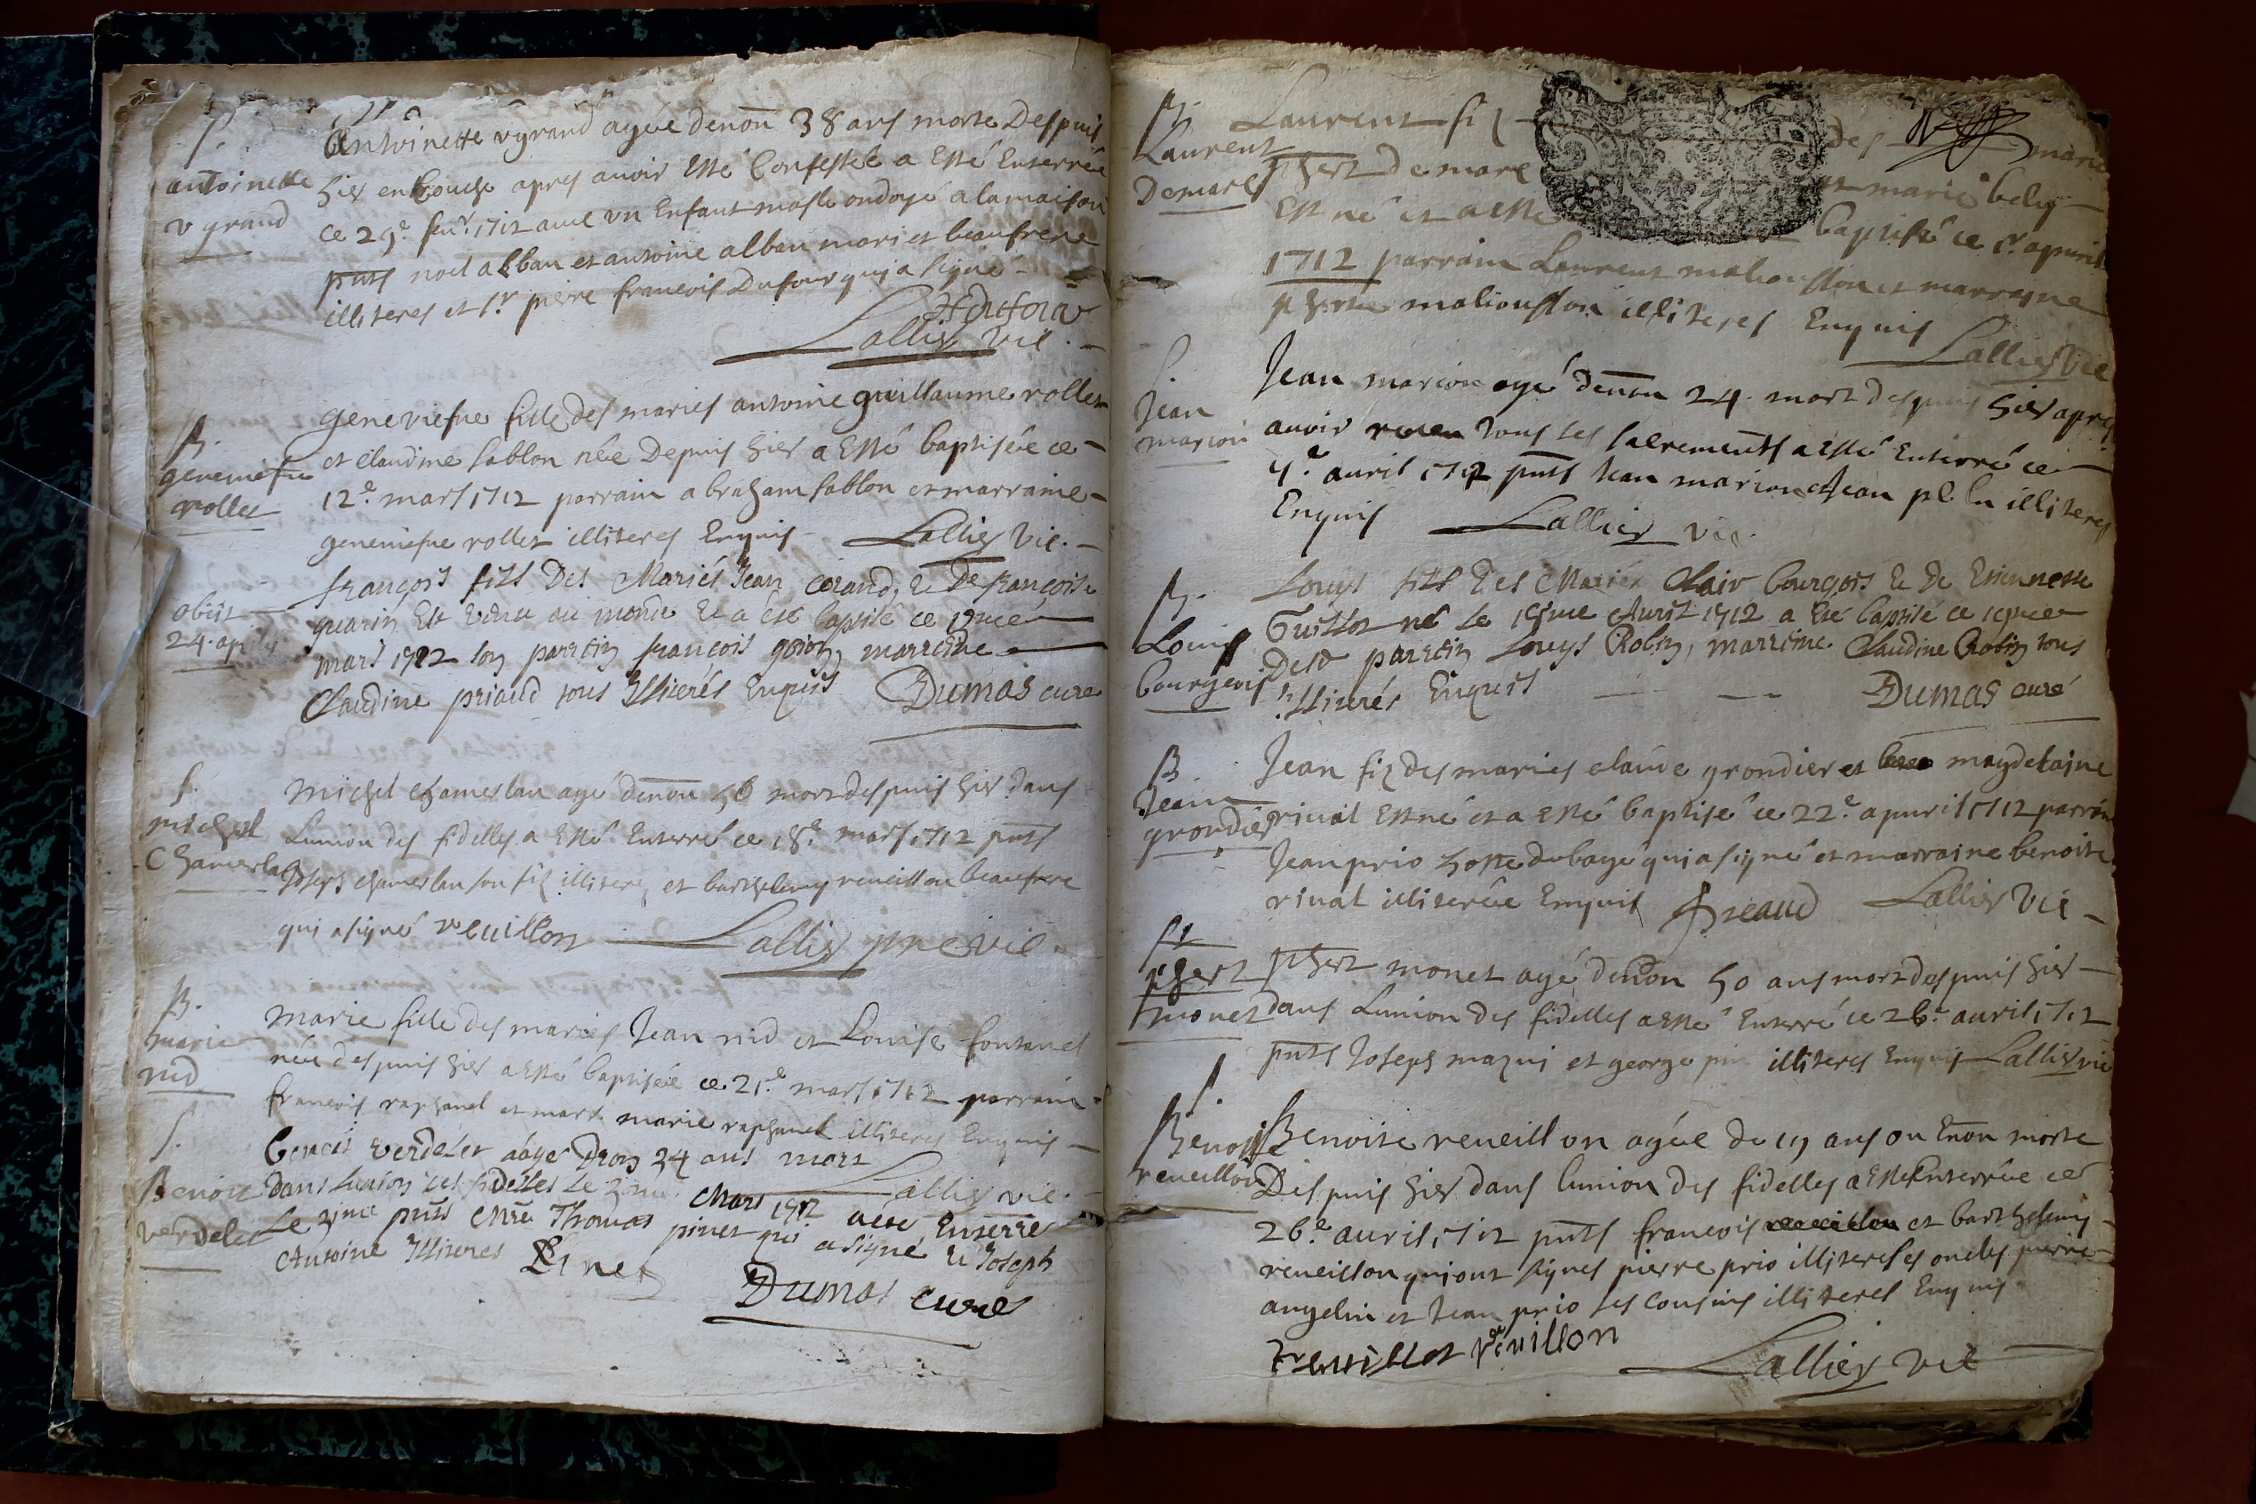 S.
antoinette
vgrand
Antoinette vgrand agée denōn 38 ans morte Despuis
hier en Couche apres auoir esté Confessée a esté Enterrée
ce 29e feur. 1712 auec vn Enfant masle ondoyé a la maison
pnts noel alban et antoine alban mari et beaufrere
illiteres et Sr pierre francois Dufour qui a signé
Dufour
Lallier vic.
B.
geneuiefue
rollet
geneuiefue fille des maries antoine guillaume rollet
et claudine sablon née Depuis hier a Esté baptisée ce
12e mars 1712 parrain abraham sablon et marraine
geneuiefue rollet illiteres Enquis Lallier Vic.
obiit
24. aprilis
françois fils Des Mariés Jean Corand, & De françoise
guarin Est Venu au monde & a esté baptisé ce
mars 1712 son parrein françois marreine
Claudine priaud tous Illiterés Enquis Dumas curé
S.
michel
Chamerlan
michel chamerlan agé denōn 56 mort despuis hier dans
Lunion des fidelles a Esté Enterré ce 18e mars 1712 pnts
Joseph chamerlan son fiz illitere et barthelemy reueillon beaufrere
qui a signé reuillon Lallier pre vic.
B.
marie
nid
marie fille des maries Jean nid et Louise fontanel
née despuis hier a esté baptisée ce 21e mars 1712 parrain
francois raphanel et marr. marie raphanel illiteres Enquis
Lallier vic.
S.
Benoit
verdelet
Benoit verdelet aagé Dnon 34 ans mort
dans lunion des fideles le Mars 1712 a esté Enterré
Le pnts Mre Thomas pinet qui a signé & Joseph
Antoine Illiteres Pinet
Dumas curé
B.
Laurent
Demare
Laurent fiz des marie
phert Demare et marie bely
Est né et a esté baptisé ce 1r apuril
1712 parrain Laurent maliousson et marreyne
maliousson illiteres Enquis
Lallier Vic
S.
Jean
marion
Jean marion agé denōn 24. mort despuis hier apres
auoir receu tous les sacrements a esté Enterré ce
auril 1712 pnts Jean marion et Jean illiteres
Enquis Lallier vic.
B.
Louis
bourgeois
Louys fils Des Mariés Clair bourgois & de Etiennette
Guillot né le Auril 1712 a Esté baptisé ce
Desd. parrein Louys Robin, marreine Claudine Robin tous
Illiterés Enquis Dumas curé
B.
Jean
grondier
Jean fiz des maries claude grondier et magdelaine
riual Est né et a Esté baptisé ce 22e apuril 1712 parrain
Jean prio hoste qui a signé et marraine benoite
riual illiterée Enquis Lallier Vic
S.
phert
monet
phert monet agé denōn 50 ans mort despuis hier
dans Lunion des fidelles a esté Enterré ce 26e auril 1712
pnts Joseph mazui et george illiteres Enquis Lallier vic
S.
Benoite
reueillon
Benoite reueillon agée de 19 ans ou Enon morte
Despuis hier dans lunion des fidelles a esté Enterrée ce
26e auril 1712 pnts francois et barthelemy
reueillon qui ont signes pierre prio illiteres ses oncles pierre
angelin et Jean prio ses Cousins illiteres Enquis
reuillon
Lallier vic